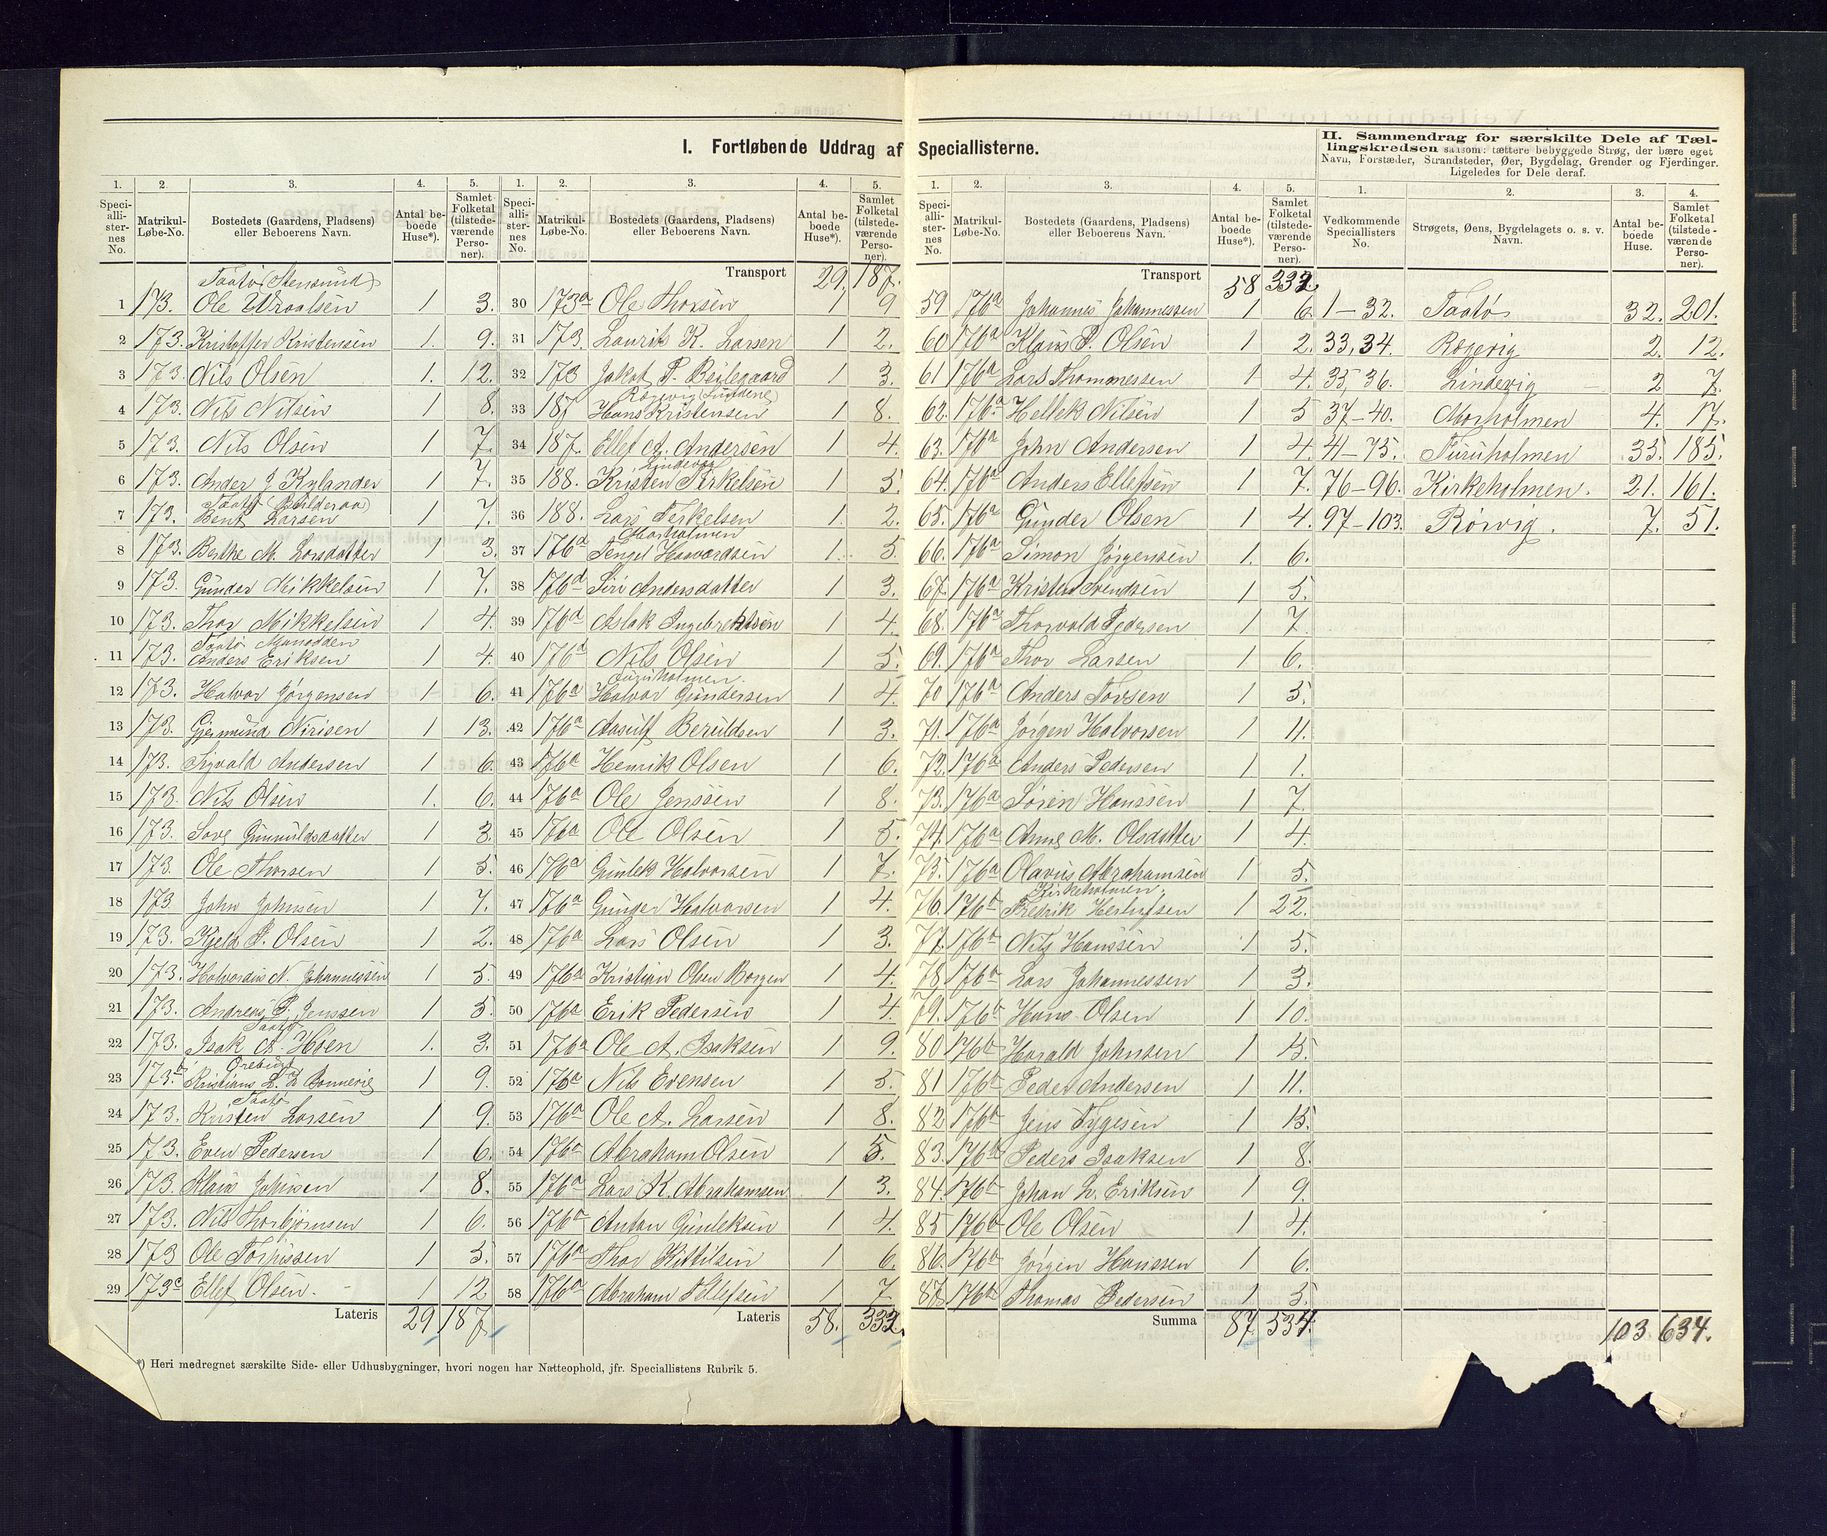 I. Fortløbende Uddrag af Speciallisterne.
II. Sammendrag for særskilte Dele af Tællingskredsen saasom: tættere bebyggede Strøg, der bære eget Navn, Forstæder, Strandsteder, Øer, Bygdelag, Grender og Fjerdinger. Ligeledes for Dele deraf.
1. 2. 3. 4. 5.
Speciallisternes No. Matrikul-Løbe-No. Bostedets (Gaardens, Pladsens) eller Beboerens Navn. Antal beboede Huse*). Samlet Folketal (tilstedeværende Personer).
Taatø (Stensund)
1 173. Ole Wraalsen 1 3.
2 173. Kristoffer Kristensen 1. 9.
3 173. Nils Olsen 1. 12.
4 173. Nils Nilsen 1 8.
5 173. Nils Olsen 1 7.
6 173. Ander J Kylander 1 7.
7 173. Larsen 1 7.
8 173. Berthe M. Larsdatter 1 3.
9 173. Gunder Mikkelsen 1 7.
10 173. Thor Mikkelsen 1 4.
Taatø
11 173. Anders Eriksen 1 4.
12 173. Halvor Jørgensen 1 6.
13 173. Gjermund Nirisen 1 13.
14 173. Sigvald Andersen 1 6.
15 173. Nils Olsen 1. 6.
16 173. Tove Gunnuldsdatter 1 3.
17 173. Ole Thorsen 1 5.
18 173. John Johnsen 1 7.
19 173. Kjeld P. Olsen 1 2.
20 173. Halvordius N. Johannessen 1 5.
21 173. Andreas P. Jenssen 1 5.
Taatø
22 173. Isak A. Hoen 1. 3.
23 173.b Kristians L. Z Bonnevie 1 9.
Taatø
24 173. Kristen Larsen 1 9.
25 173. Even Pedersen 1 6.
26 173. Klaus Johnsen 1 8.
27 173. Nils Thorbjørnsen 1 6.
28 173 Ole Torgissen 1 5.
29 173c Ellef Olsen. 1 12
Lateris 29 187.
1. 2. 3. 4. 5.
Speciallisternes No. Matrikul-Løbe-No. Bostedets (Gaardens, Pladsens) eller Beboerens Navn. Antal beboede Huse*). Samlet Folketal (tilstedeværende Personer).
Transport 29. 187.
30 173a Ole Thorsen 1 9
31 173. Laurits K. Larsen 1 2.
32 173 Jakob P. Beilegaard 1 3.
33 187 Hans Kristensen 1 8.
34 187. Ellef A. Andersen 1 4.
35 188. Kristen Terkelsen 1 5.
36 188. Lars Terkelsen 1. 2.
Morholmen
37 176d Tengel Haavardsen 1. 5.
38 176d Siri Andersdatter 1 3.
39 176d Aslak Ingebretsen 1 4.
40 176d Nils Olsen 1 5.
Furuholmen.
41 176a Halvor Gundersen 1 4.
42 176a Aasulf Beruldsen 1 3.
43 176a Henrik Olsen 1 6.
44 176a Ole Jenssen 1 8.
45 176a Ole Olsen 1 5.
46 176a Gunlek Halvorsen 1 7.
47 176a Gunder Halvorsen 1 4.
48 176a Lars Olsen 1 3.
49 176a Kristian Olsen Borgen 1 4.
50 176a Erik Pedersen 1 4.
51 176a Ole A. Isaksen 1 9.
52 176a Nils Evensen 1 5.
53 176a Ole A. Larsen 1 8.
54 176a Abraham Olsen 1 5.
55 176a Lars K. Abrahamsen 1 3.
56 176a Anton Gunleksen 1 4.
57 176a Thor Kittilsen 1 6.
58 176a Abraham Tellefsen 1 7.
Lateris 58. 332.
1. 2. 3. 4. 5.
Speciallisternes No. Matrikul-Løbe-No. Bostedets (Gaardens, Pladsens) eller Beboerens Navn. Antal beboede Huse*). Samlet Folketal (tilstedeværende Personer).
Transport 58 332.
59 176a Johannes Johannessen 1 6.
60 176a Klaus P. Olsen 1 2.
61 176a Lars Thommessen 1 4.
62. 176.a Hellek Nilsen 1 5
63. 176a John Andersen 1 4.
64. 176a Anders Ellefsen 1 7.
65. 176a Gunder Olsen 1 4.
66. 176a Simon Jørgensen 1. 6.
67. 176a Kristen Svendsen 1 5.
68. 176a Thorvald Pedersen 1 7.
69. 176a Thor Larsen 1 6.
70 176a Anders Torsen 1 5.
71. 176a Jørgen Halvorsen 1 11.
72. 176a Anders Pedersen 1 1.
73. 176a Søren Hanssen 1 7.
74. 176a Anne M. Olsdatter 1 4.
75. 176a Olavus Abrahamsen 1 5.
Kirkeholmen.
76. 176b Fredrik Herlufsen 1 22.
77. 176b Nils Hanssen 1 5.
78. 176b Lars Johannessen 1 3.
79. 176b Hans Olsen 1 10.
80 176b Harald Johnsen 1 15.
81 176b Peder Andersen 1 11.
82 176b Jens Tygesen 1 15.
83. 176b Peders Isaksen 1 8.
84. 176b Johan L. Eriksen 1 9.
85 176b Ole Olsen 1 4.
86. 176b Jørgen Hanssen 1 6.
87. 176b Thomas Pedersen 1 5.
Summa 87 534.
1. 2. 3. 4.
Vedkommende Speciallisters No. Strøgets, Øens, Bygdelagets o. s. v. Navn. Antal beboede Huse. Samlet Folketal (tilstedeværende Personer).
1-32. Taatø 32. 201.
33, 34. Røgevig 2. 12.
35, 36. Lindevig 2 7.
37-40. Morholmen 4. 17.
41-75. Furuholmen 35. 185.
76-96. Kirkeholmen. 21. 161.
97-103. Rørvig. 7. 51.
103 634.
*) Heri medregnet særskilte Side- eller Udhusbygninger, hvori nogen har Natteophold, jfr. Speciallistens Rubrik 5.